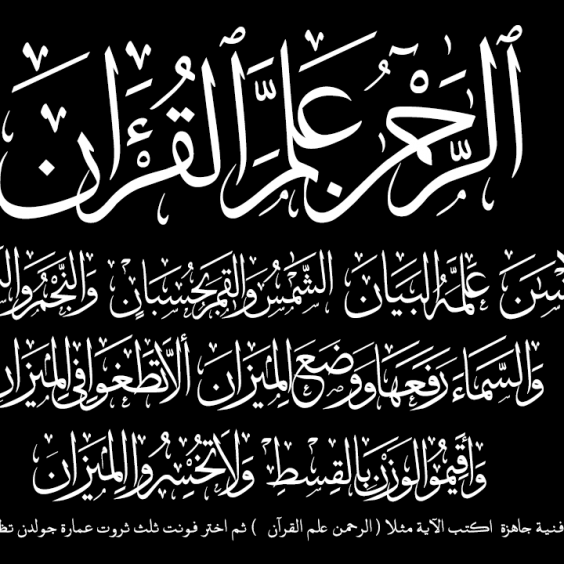 الرَّحْمٰنُ عَلَّمَ الْقُرْآنَ
عَلَّمَهُ الْبَيَانَ الشَّمْسُ وَالْقَمَرُ بِحُسْبَانٍ وَالنَّجْمُ
وَالسَّمَاءَ رَفَعَهَا وَوَضَعَ الْمِيزَانَ أَلَّا تَطْغَوْا فِي الْمِيزَانِ
وَأَقِيمُوا الْوَزْنَ بِالْقِسْطِ وَلَا تُخْسِرُوا الْمِيزَانَ
فنية جاهزة اكتب الآية مثلا ( الرحمن علم القرآن ) ثم اختر فونت ثلث ثروت عمارة جولدن